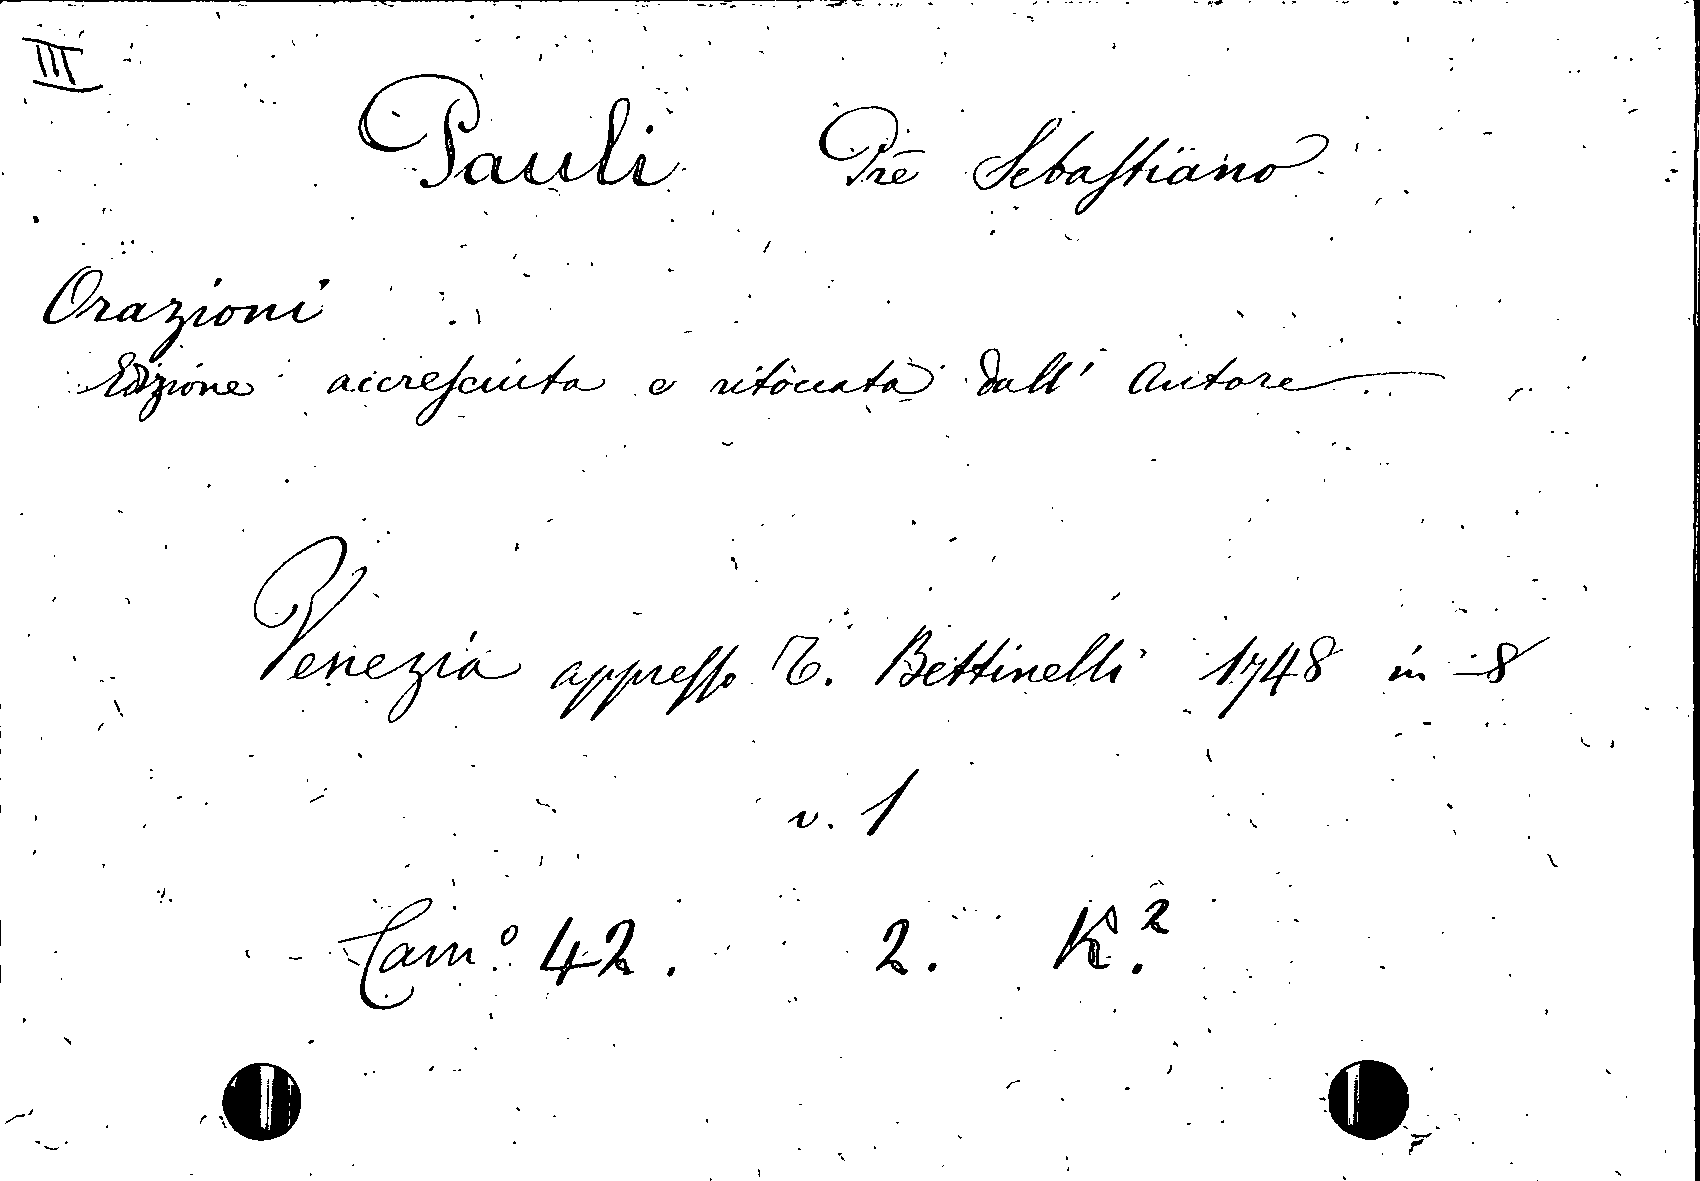 III
Pauli Pre Sebastiano
Orazioni
Edizione accresciuta e ritoccata dall' Autore
Venezia appresso T. Bettinelli 1748 in -8
v. 1
Cam.º 42. 2. K.²